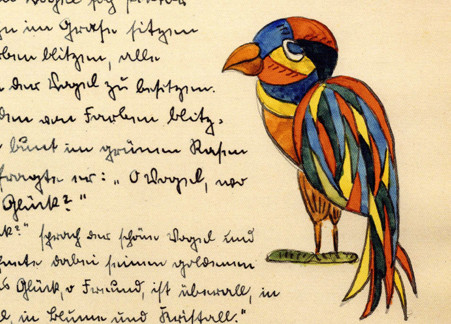 Vogel sah Piktor
hn im Grase sitzen
rben blitzen, alle
n der Vogel zu besitzen.
den von Farben blitz-
bunt im grünen Rasen
fragte er: „O Vogel, wo
Glück?"
k?" sprach der schöne Vogel und
nete dabei seinen goldenen
s Glück, o Freund, ist überall, in
l, in Blume und Kristall."